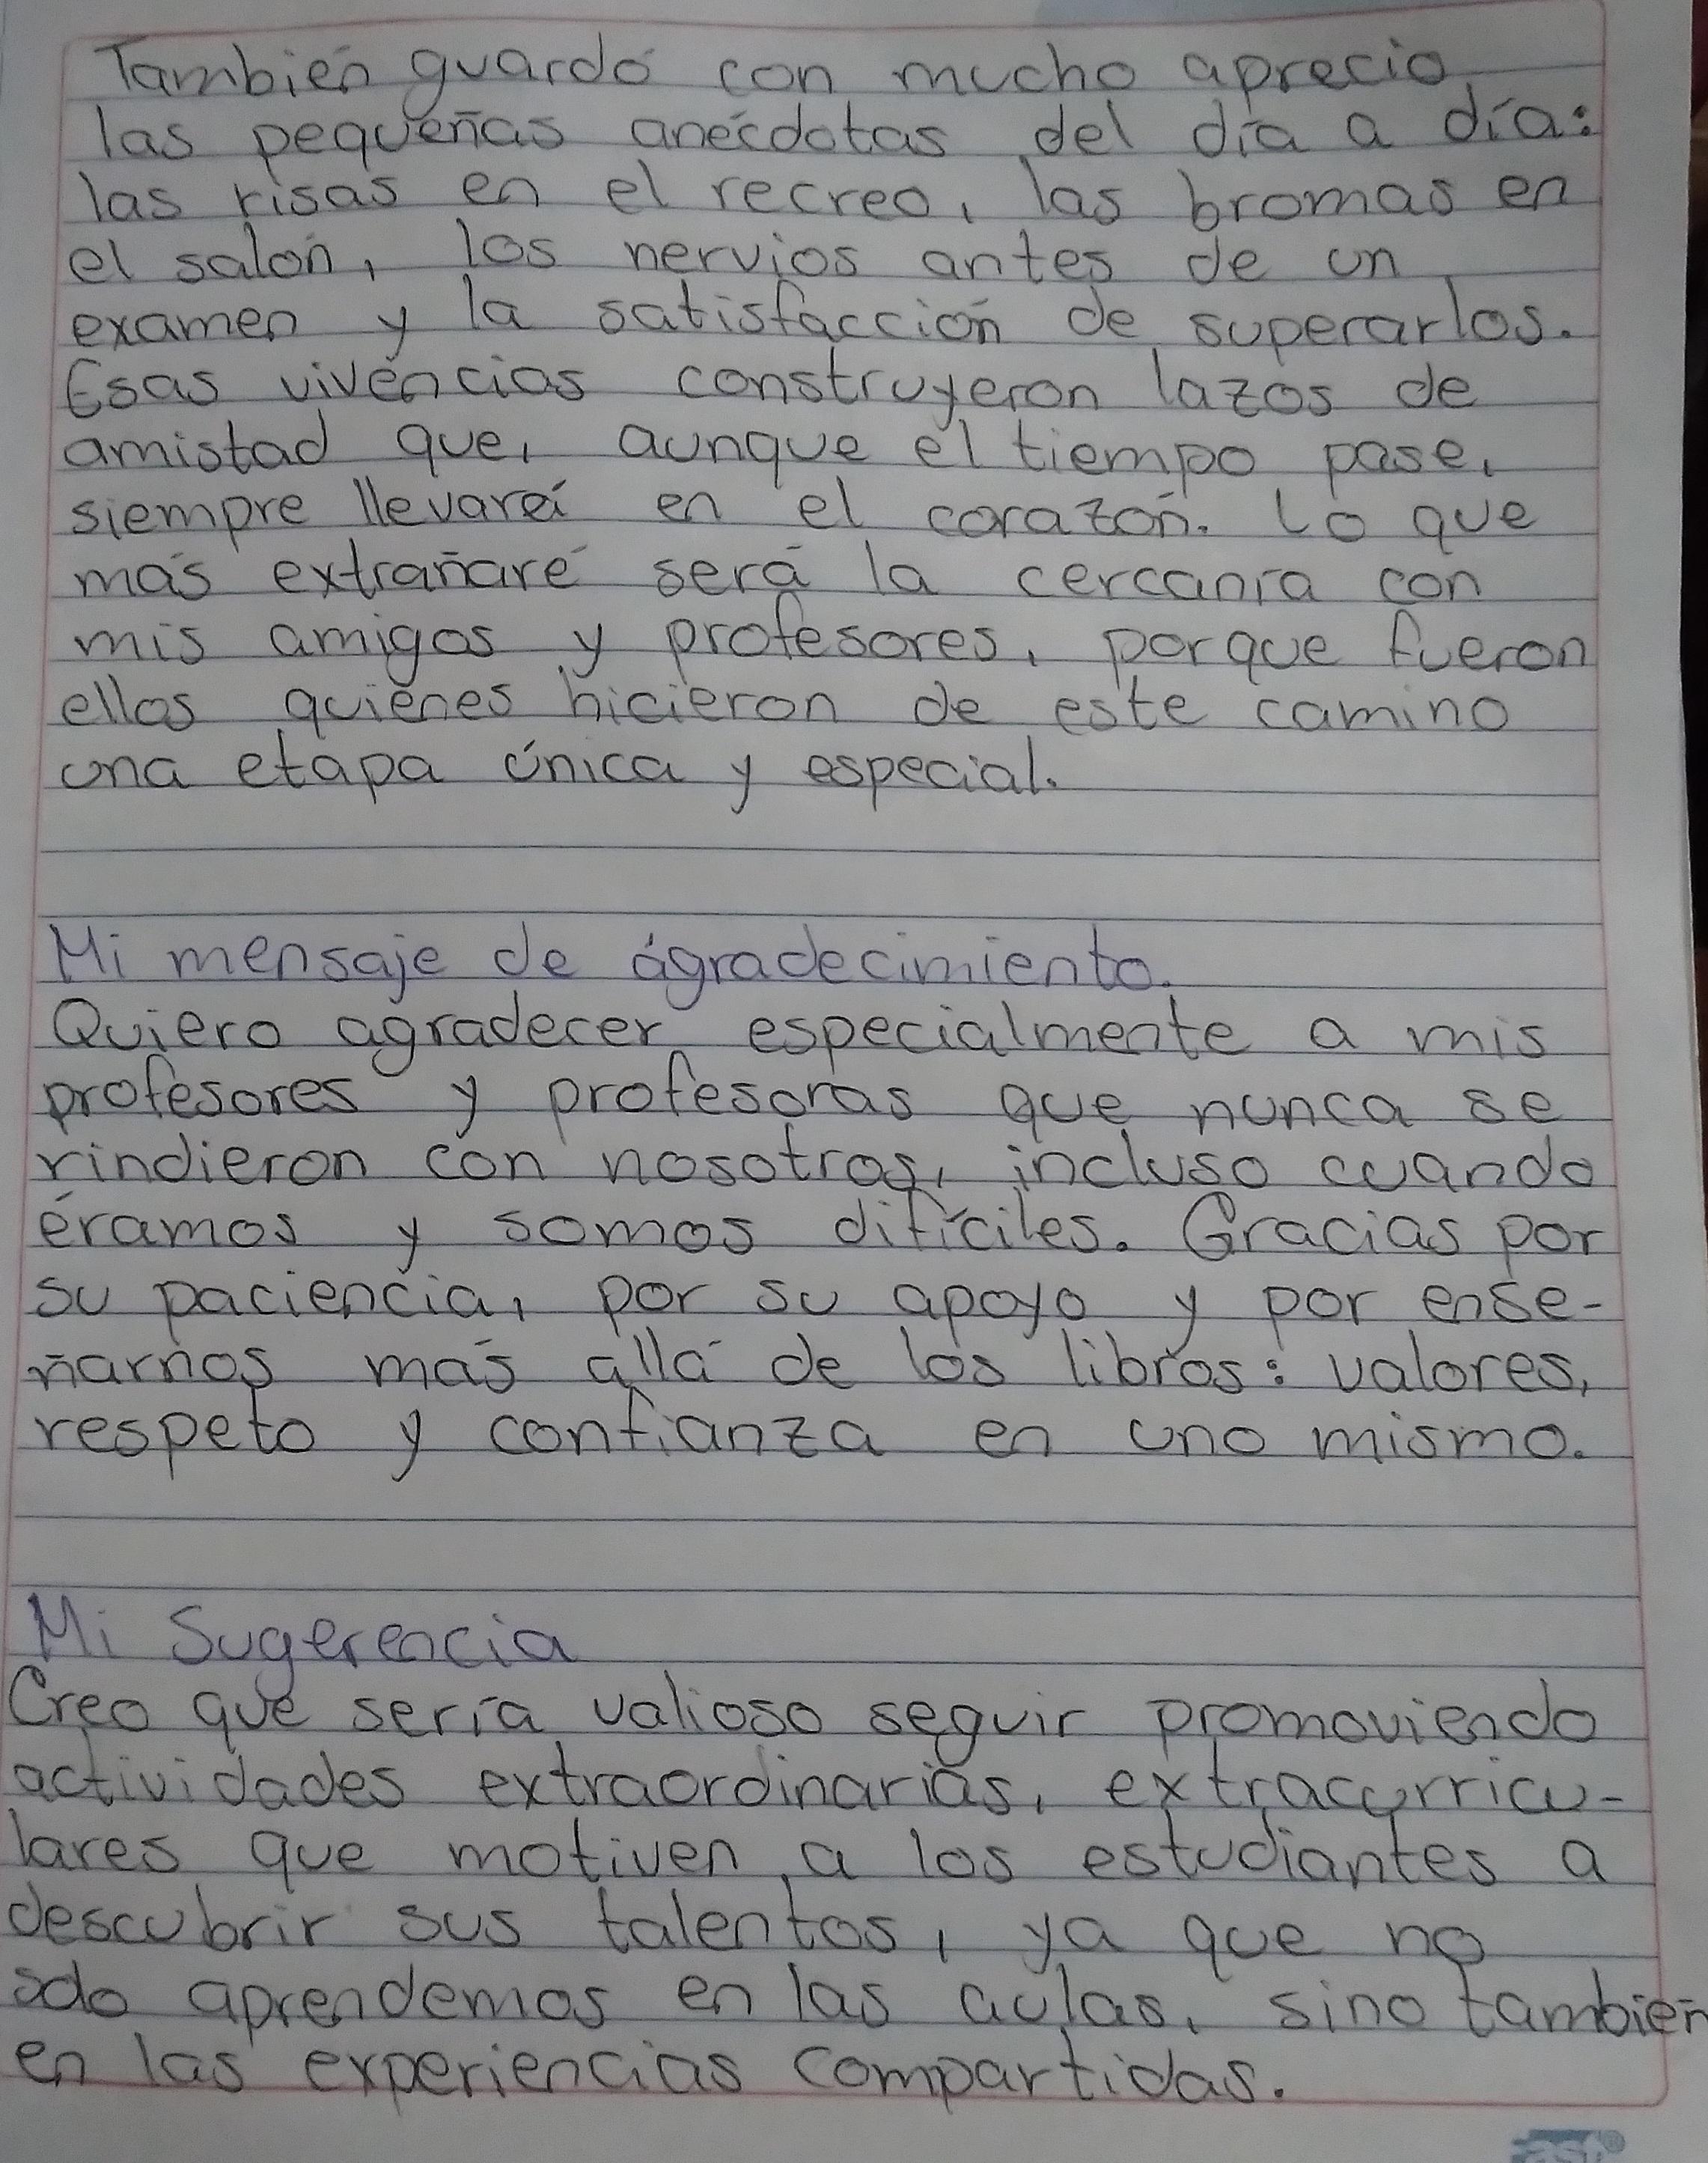 También guardó con mucho aprecio
las pequeñas anécdotas del día a día:
las risas en el recreo, las bromas en
el salón, los nervios antes de un
examen y la satisfacción de superarlos.
Esas vivencias construyeron lazos de
amistad que, aunque el tiempo pase,
siempre llevaré en el corazón. Lo que
más extrañaré será la cercanía con
mis amigos y profesores, porque fueron
ellos quiénes hicieron de este camino
una etapa única y especial.
Mi mensaje de ágradecimiento.
Quiero agradecer especialmente a mis
profesores y profesoras que nunca se
rindieron con nosotros, incluso cuando
éramos y somos difíciles. Gracias por
su paciencia, por su apoyo y por ense-
ñarnos más allá de los libros: valores,
respeto y confianza en uno mismo.
Mi Sugerencia
Creo que sería valioso seguir promoviendo
actividades extraordinarias, extracurricu-
lares que motiven a los estudiantes a
descubrir sus talentos, ya que no
solo aprendemos en las aulas, sino también
en las experiencias compartidas.